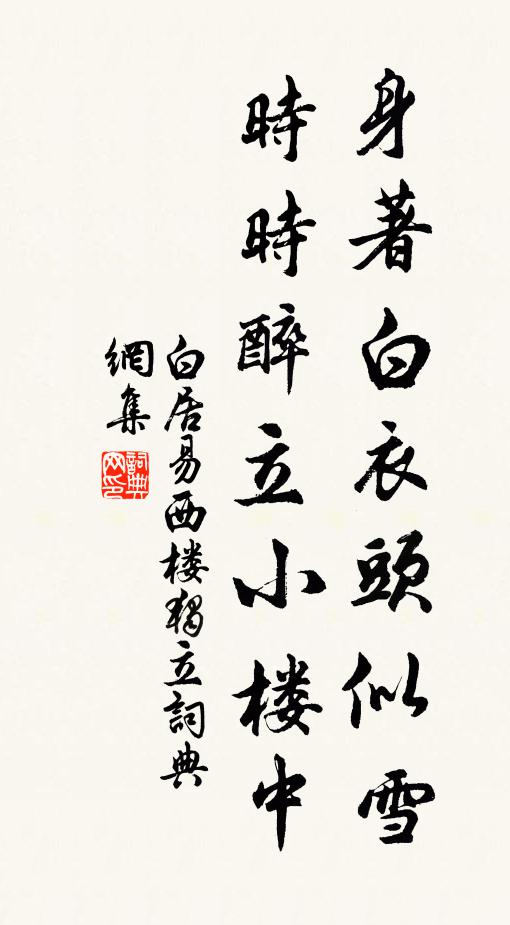 身著白衣頭似雪
時時醉立小楼中
白居易西楼獨立詞典
網集
詞典
网印